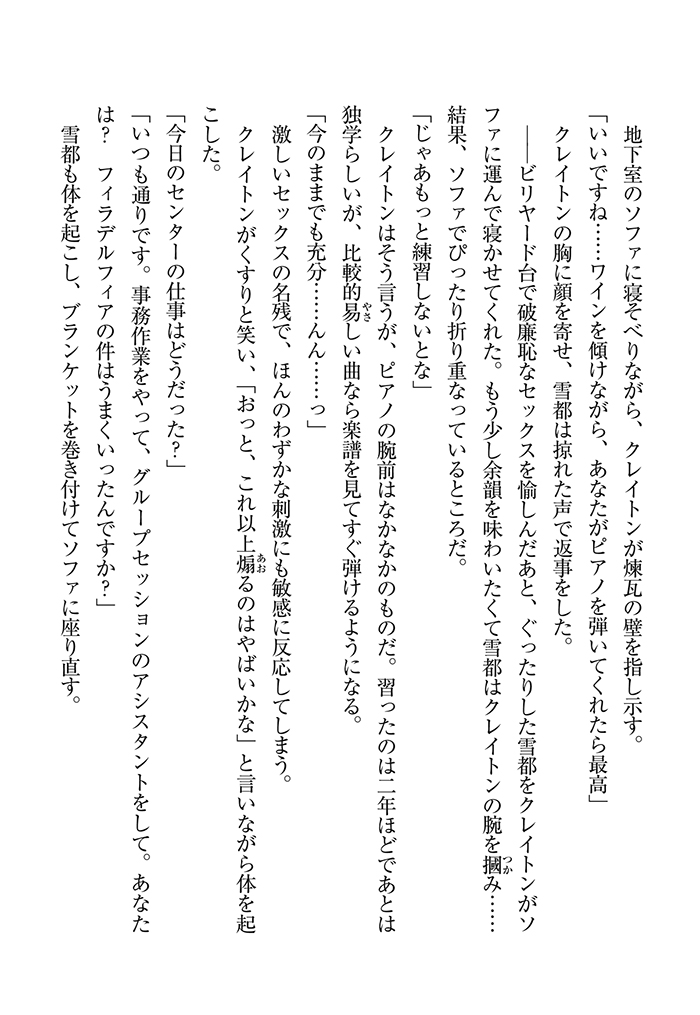 地下室のソファに寝そべりながら、クレイトンが煉瓦の壁を指し示す。
「いいですね……ワインを傾けながら、あなたがピアノを弾いてくれたら最高」
クレイトンの胸に顔を寄せ、雪都は掠れた声で返事をした。
――ビリヤード台で破廉恥なセックスを愉しんだあと、ぐったりした雪都をクレイトンがソ
ファに運んで寝かせてくれた。もう少し余韻を味わいたくて雪都はクレイトンの腕を摑み……
結果、ソファでぴったり折り重なっているところだ。
「じゃあもっと練習しないとな」
クレイトンはそう言うが、ピアノの腕前はなかなかのものだ。習ったのは二年ほどであとは
独学らしいが、比較的易しい曲なら楽譜を見てすぐ弾けるようになる。
「今のままでも充分……んん……っ」
激しいセックスの名残で、ほんのわずかな刺激にも敏感に反応してしまう。
クレイトンがくすりと笑い、「おっと、これ以上煽るのはやばいかな」と言いながら体を起
こした。
「今日のセンターの仕事はどうだった？」
「いつも通りです。事務作業をやって、グループセッションのアシスタントをして。あなた
は？　フィラデルフィアの件はうまくいったんですか？」
雪都も体を起こし、ブランケットを巻き付けてソファに座り直す。